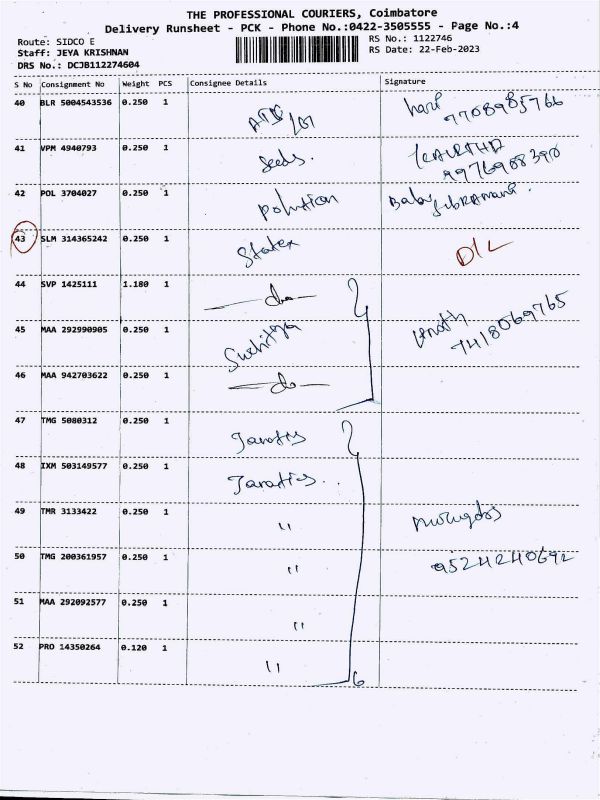 THE PROFESSIONAL COURIERS, Coimbatore
Delivery Runsheet - PCK - Phone No.:0422-3505555 - Page No.:4
Route: SIDCO E
RS No.: 1122746
Staff: JEYA KRISHNAN
RS Date: 22-Feb-2023
DRS No.: DCJB112274604
S No Consignment No Weight PCS Consignee Details Signature
40 BLR 5004543536 0.250 1
9708985766
41 VPM 4940793 0.250 1 Seeds.
9976908390
42 POL 3704027 0.250 1 Polution Baby
43 SLM 314365242 0.250 1 Statex D/L
44 SVP 1425111 1.180 1 — do —
45 MAA 292990905 0.250 1
7418069765
46 MAA 942703622 0.250 1 — do —
47 TMG 5080312 0.250 1 Janatics
48 IXM 503149577 0.250 1 Janatics..
49 TMR 3133422 0.250 1 "
50 TMG 200361957 0.250 1 " 9524240692
51 MAA 292092577 0.250 1 "
52 PRO 14350264 0.120 1 " 6